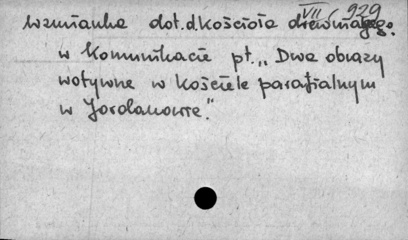 VII / 929
Wzmianka dot. kościoła drewnianego.
w Komunikacie pt. „Dwa obrazy
wotywne w kościele parafialnym
w Jordanowie."